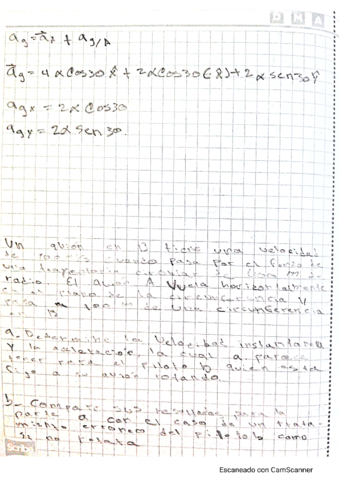 D M A
a⃗g = a⃗A + ag/A
a⃗g = 4αCos30 x̂ + 2αCos30(-x̂) + 2α sen30 ŷ
agx = 2α Cos30
agy = 2α sen 30.
Un avion en B tiene una velocidad
de cuando pasa por el fondo de
una trayectoria circular de m de
radio. El avion A Vuela horizontalmente
plano de la circunferencia y
pasa a 100 m de una circunferencia
en B
a. Determine la Velocidad instantanea
y la aceleración la cual A parece
tener para el piloto B quien esta
fijo a su avion rotando.
b. Compare sus resultados para la
parte a con el caso de un trata-
miento erroneo del piloto b como
si no rotara
Escaneado con CamScanner